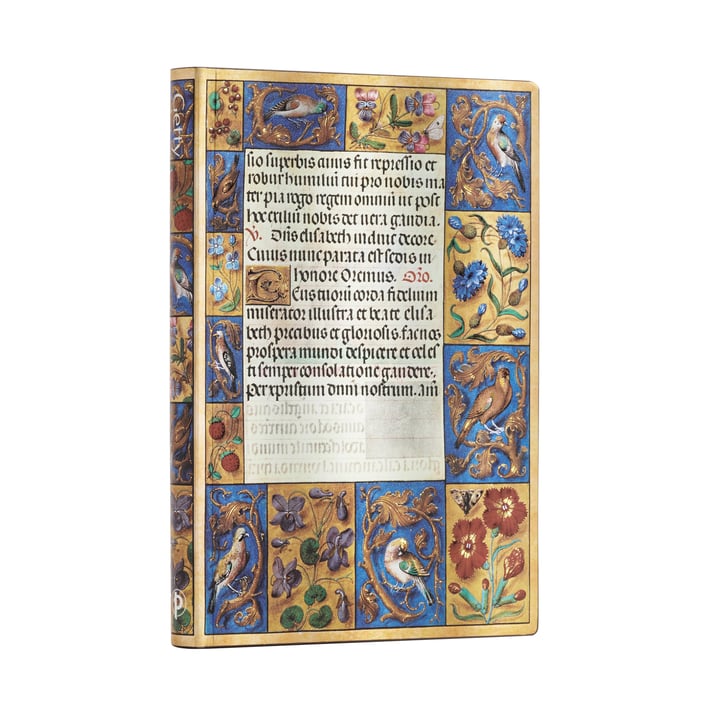 Getty
sio superbis cuius fit repressio et
robur humiliū tui pro nobis ma
ter pia rogo regem omniū ut post
hoc exiliū nobis det uera gaudia.
V. Dn̄s elisabeth induit decore.
Cuius nunc parata est sedis in
honore Oremus. Oro.
Deus trioru corda fidelium
miserator illustra et beate elisa
beth precibus et gloriosis. fac nos
prospera mundi despicere et celes
ti semper consolatione gaudere.
Per xp̄istum dnm̄ nostrum. am̄